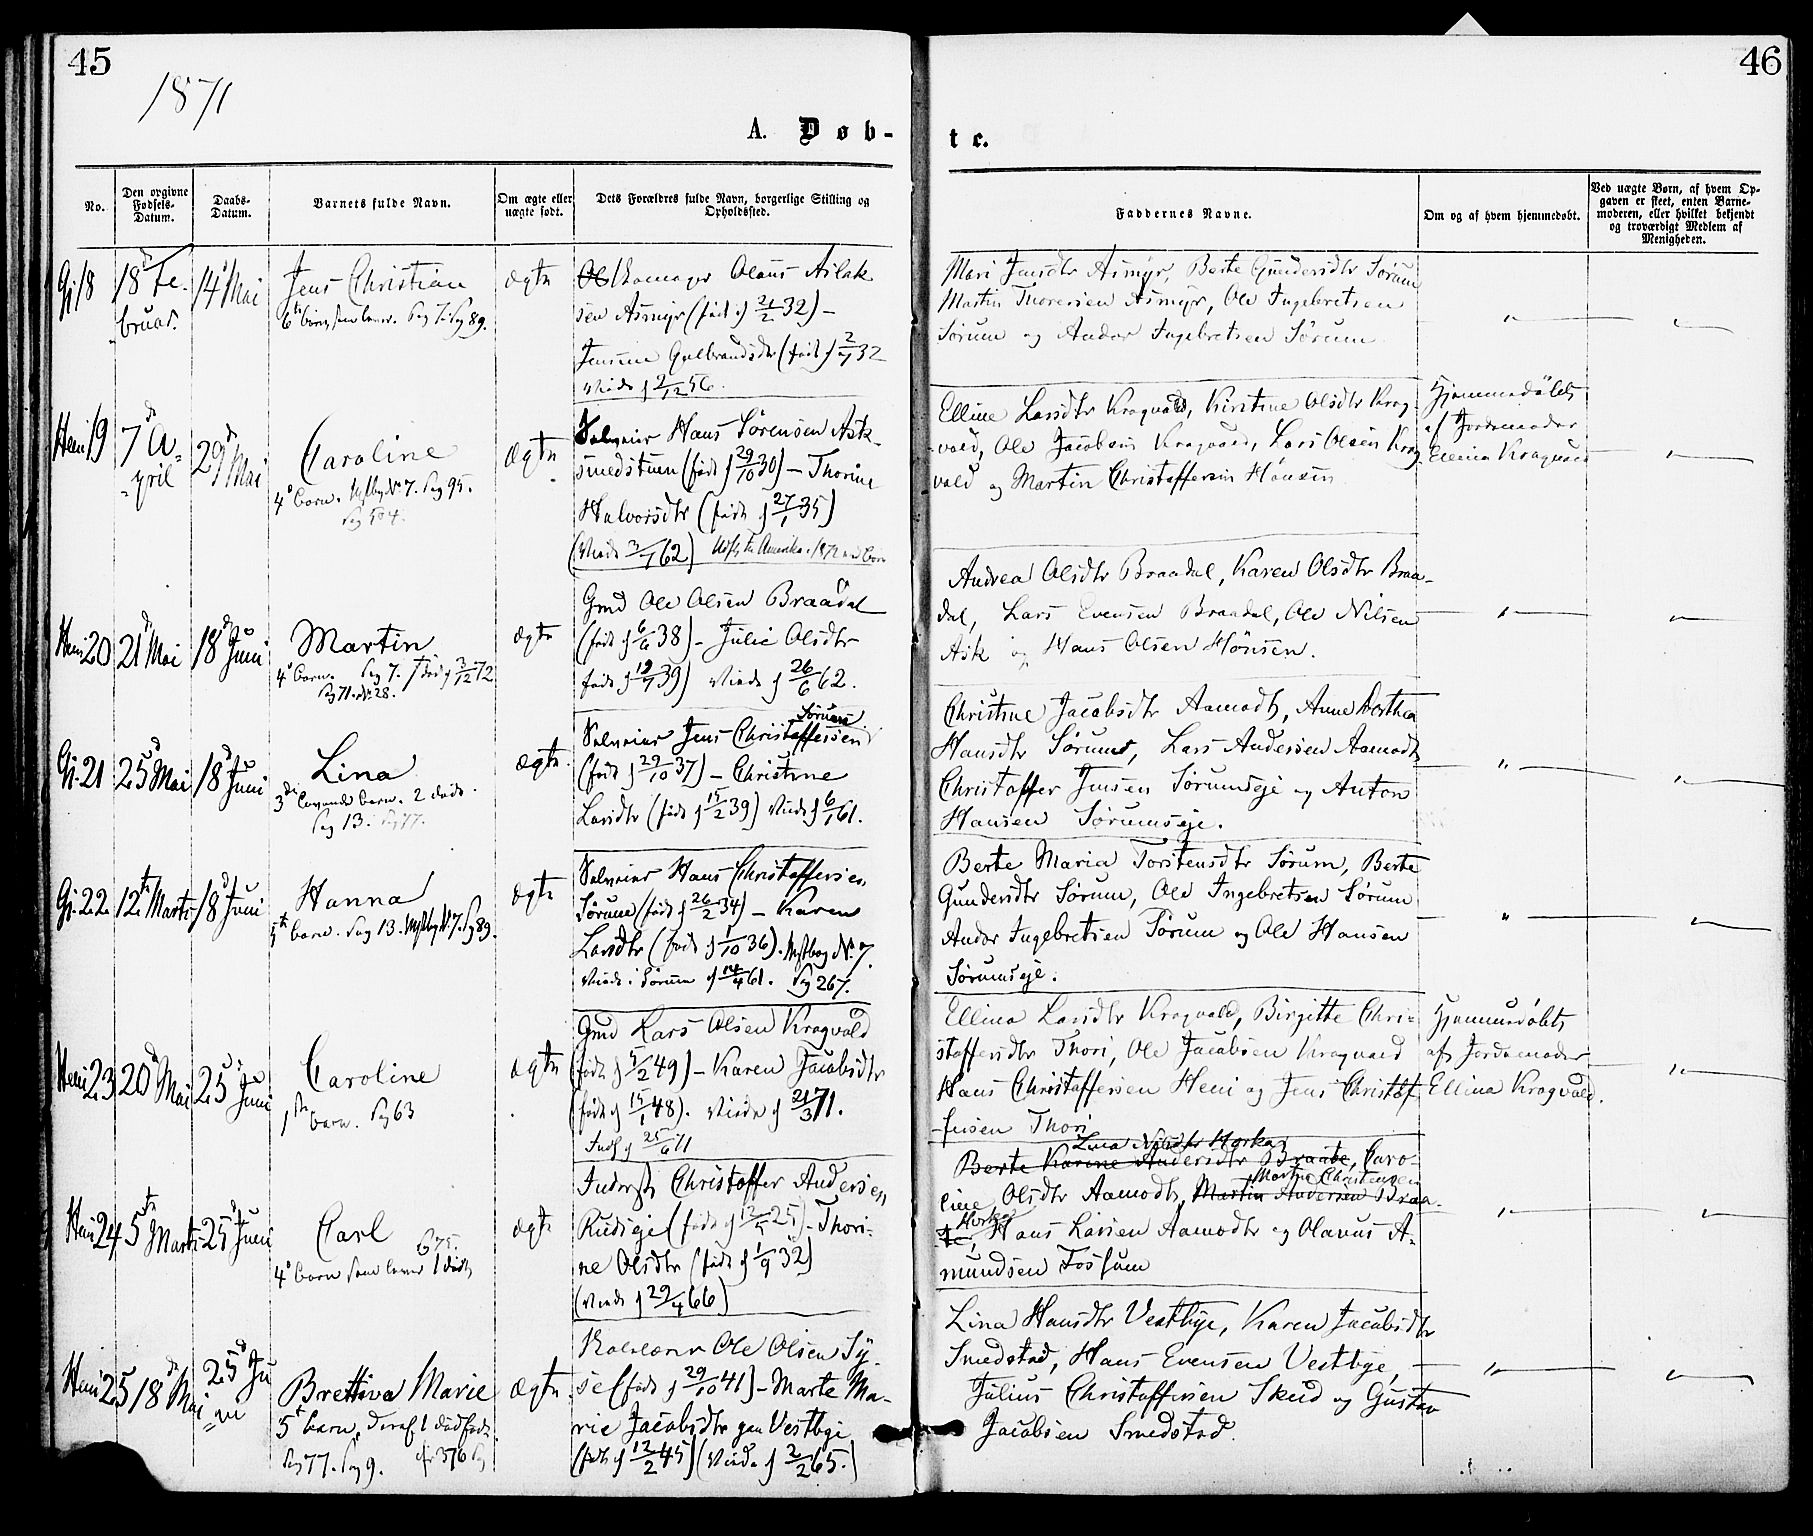 45
46
1871
A. Døb-
te.
No.
Den opgivne Fødsels-Datum.
Daabs-Datum.
Barnets fulde Navn.
Om ægte eller uægte født.
Dets Forældres fulde Navn, borgerlige Stilling og Opholdssted.
Faddernes Navne.
Om og af hvem hjemmedøbt.
Ved uægte Børn, af hvem Opgaven er skeet, enten Barnemoderen, eller hvilket bekjendt og troværdigt Medlem af Menigheden.
Gj. 18
18d Februar.
14d Mai
Jens Christian
6te barn, som lever. Pag 7. Pag 89.
ægte
Skomager Olaus Aslak-
sen Asmyr (født d 21/2 32) –
Jensine Gulbrandsdtr (født d 2/7 32
Viede d 2/12 56.
Mari Jensdtr Asmyr, Berte Gundersdtr Sørum
Martin Thoresen Asmyr, Ole Ingebretsen
Sørum og Andor Ingebretsen Sørum
Hem 19
7d A-
pril
29d Mai
Caroline
4d barn. No 7. Pag 95.
ægte
Selveier Hans Sørensen Ask-
smedstuen (født d 29/10 30) – Thorine
Halvorsdtr (født d 27/1 35)
(Viede 3/1 62) Udfl. til Amerika 1872
Elline Larsdtr Kragvold, Kirstine Olsdtr Krag-
vold, Ole Jacobsen Kragvold, Lars Olsen Krag-
vold og Martin Christoffersen Hønsen
Hjemmedøbt
af Jordemoder
Ellina Kragvold
Hem 20
21d Mai
18d Juni
Martin
4d barn. Pag 7. † død d 3/12 72
Pag 71. No 28.
ægte
Grmd Ole Olsen Braadal
(født d 6/6 38) – Julie Olsdtr
født d 19/7 39) Viede d 26/6 62.
Andrea Olsdtr Braadal, Karen Olsdtr Braa-
dal, Lars Evensen Braadal, Ole Nilsen
Ask og Hans Olsen Hønsen.
Gj. 21
25d Mai
18d Juni
Lina
3die levende barn. 2 døde.
Pag 13. Pag 77.
ægte
Sørum
Selveier Jens Christoffersen
(født d 29/10 37) – Christine
Larsdtr (født d 15/2 39) Viede d 6/1 61.
Christine Jacobsdtr Aamodt, Anne Dorthea
Hansdtr Sørum, Lars Andersen Aamodt
Christoffer Jensen Sørumseje og Anton
Hansen Sørumseje.
Gj. 22
12te Marts
18d Juni
Hanna
5te barn. Pag 13. No 7. Pag 89.
ægte
Selveier Hans Christoffersen
Sørum (født d 26/2 34) – Karen
Larsdtr (født d 1/10 36). No 7.
Viede i Sørum d 14/4 61. Pag 267.
Berte Maria Torstensdtr Sørum, Berte
Gundersdtr Sørum, Ole Ingebretsen Sørum
Andor Ingebretsen Sørum og Ole Hansen
Sørumseje.
Hem 23
20d Mai
25d Juni
Caroline
1ste barn. Pag 63
ægte
Grmd Lars Olsen Kragvold
(født d 5/2 49) – Karen Jacobsdtr
(født d 15/1 48). Viede d 21/3 71.
Indf d 25/6 71
Ellina Larsdtr Kragvold, Birgitte Chri-
stoffersdtr Thori, Ole Jacobsen Kragvold
Hans Christoffersen Hem og Jens Christof-
fersen Thori
Hjemmedøbt
af Jordemoder
Ellina Kragvold.
Hem 24
5te Marts
25d Juni
Carl
675.
4d barn som lever 1 død
ægte
Inderst Christoffer Andersen
Rudseje (født d 12/5 25) – Thori-
ne Olsdtr (født d 1/9 32)
(Viede d 29/4 66)
Lina Nilsdtr Horka
Berte Karine Andersdtr Braate, Caro-
Martin Christensen
line Olsdtr Aamodt, Martin Andersen Braa-
Horka
te, Hans Larsen Aamodt og Olavus A-
mundsen Fossum
Hem 25
18d Mai
25d Ju-
ni
Brettiva Marie
5te barn, deraf 1 dødfødt
Pag 77. Pag 9.
ægte
Ole Olsen Sy-
se (født d 29/10 41) – Marte Ma-
rie Jacobsdtr paa Vestbye
(født d 12/2 45) (Viede d 2/2 65.)
Lina Hansdtr Vestbye, Karen Jacobsdtr
Smedstad, Hans Evensen Vestbye,
Julius Christoffersen Skud og Gustav
Jacobsen Smedstad.